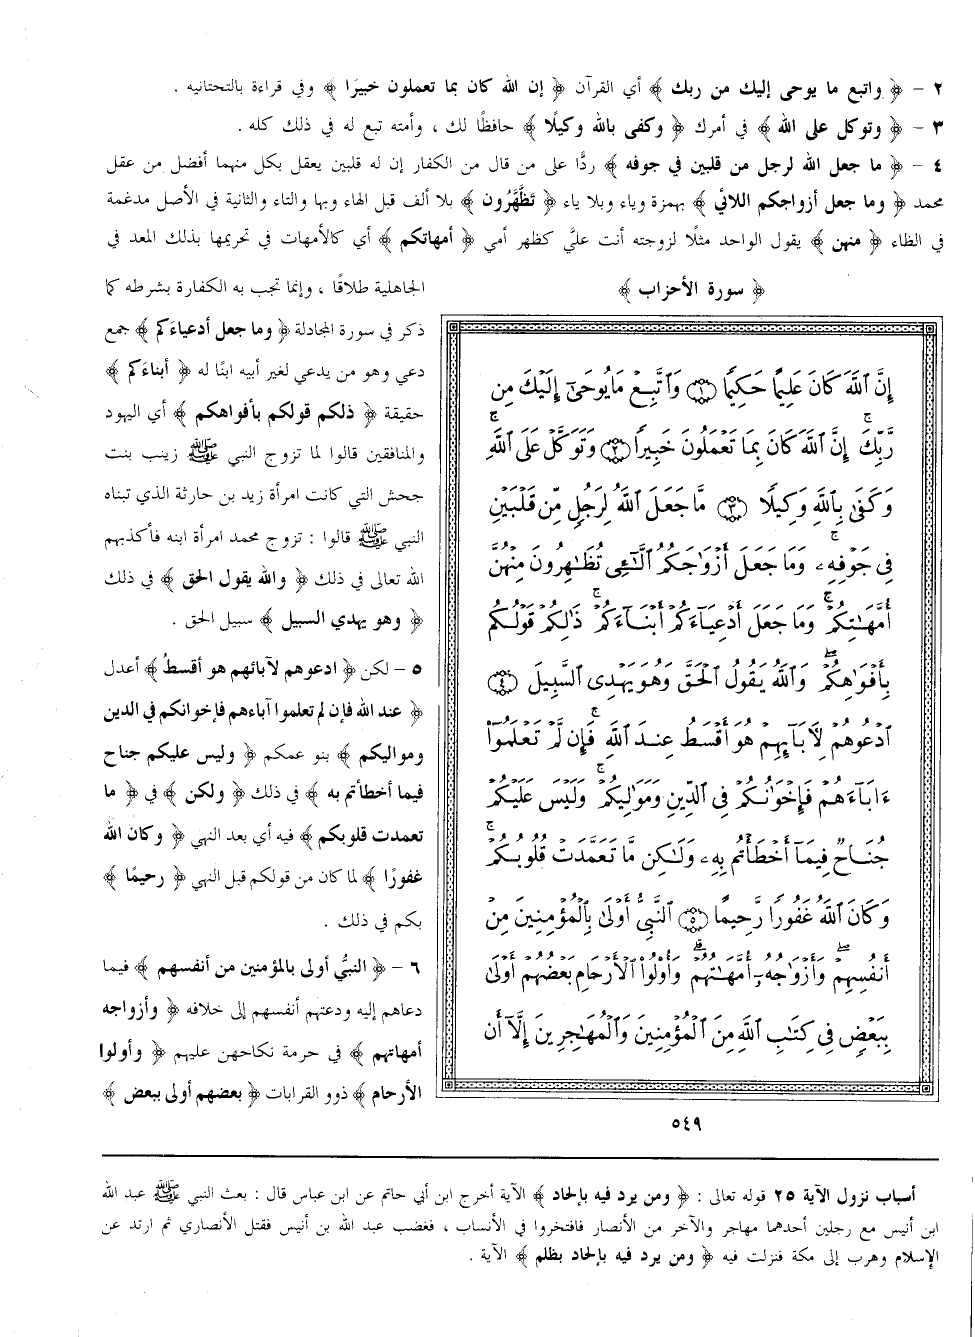 ٢ – ﴿ واتبع ما يوحى إليك من ربك ﴾ أي القرآن ﴿ إن الله كان بما تعملون خبيرًا ﴾ وفي قراءة بالتحتانيه .
٣ – ﴿ وتوكل على الله ﴾ في أمرك ﴿ وكفى بالله وكيلًا ﴾ حافظًا لك ، وأمته تبع له في ذلك كله .
٤ – ﴿ ما جعل الله لرجل من قلبين في جوفه ﴾ ردًّا على من قال من الكفار إن له قلبين يعقل بكل منهما أفضل من عقل
محمد ﴿ وما جعل أزواجكم اللائي ﴾ بهمزة وياء وبلا ياء ﴿ تَظَّهَّرُون ﴾ بلا ألف قبل الهاء وبها والتاء والثانية في الأصل مدغمة
في الظاء ﴿ منهن ﴾ يقول الواحد مثلًا لزوجته أنت عليَّ كظهر أمي ﴿ أمهاتكم ﴾ أي كالأمهات في تحريمها بذلك المعد في
الجاهلية طلاقًا ، وإنما تجب به الكفارة بشرطه كما
ذكر في سورة المجادلة ﴿ وما جعل أدعياءَكم ﴾ جمع
دعي وهو من يدعي لغير أبيه ابنًا له ﴿ أبناءَكم ﴾
حقيقة ﴿ ذلكم قولكم بأفواهكم ﴾ أي اليهود
والمنافقين قالوا لما تزوج النبي ﷺ زينب بنت
جحش التي كانت امرأة زيد بن حارثة الذي تبناه
النبي ﷺ قالوا : تزوج محمد امرأة ابنه فأكذبهم
الله تعالى في ذلك ﴿ والله يقول الحق ﴾ في ذلك
﴿ وهو يهدي السبيل ﴾ سبيل الحق .
٥ – لكن ﴿ ادعوهم لآبائهم هو أقسطُ ﴾ أعدل
﴿ عند الله فإن لم تعلموا آباءهم فإخوانكم في الدين
ومواليكم ﴾ بنو عمكم ﴿ وليس عليكم جناح
فيما أخطأتم به ﴾ في ذلك ﴿ ولكن ﴾ في ﴿ ما
تعمدت قلوبكم ﴾ فيه أي بعد النهي ﴿ وكان الله
غفورًا ﴾ لما كان من قولكم قبل النهي ﴿ رحيمًا ﴾
بكم في ذلك .
٦ – ﴿ النبيُّ أولى بالمؤمنين من أنفسهم ﴾ فيما
دعاهم إليه ودعتهم أنفسهم إلى خلافه ﴿ وأزواجه
أمهاتهم ﴾ في حرمة نكاحهن عليهم ﴿ وأولوا
الأرحام ﴾ ذوو القرابات ﴿ بعضهم أولى ببعض ﴾
﴿ سورة الأحزاب ﴾
إِنَّ ٱللَّهَ كَانَ عَلِيمًا حَكِيمًا ١ وَٱتَّبِعْ مَا يُوحَىٰٓ إِلَيْكَ مِن
رَّبِّكَ ۚ إِنَّ ٱللَّهَ كَانَ بِمَا تَعْمَلُونَ خَبِيرًا ٢ وَتَوَكَّلْ عَلَى ٱللَّهِ ۚ
وَكَفَىٰ بِٱللَّهِ وَكِيلًا ٣ مَّا جَعَلَ ٱللَّهُ لِرَجُلٍ مِّن قَلْبَيْنِ
فِى جَوْفِهِۦ ۚ وَمَا جَعَلَ أَزْوَٰجَكُمُ ٱلَّٰٓـِٔى تُظَٰهِرُونَ مِنْهُنَّ
أُمَّهَٰتِكُمْ ۚ وَمَا جَعَلَ أَدْعِيَآءَكُمْ أَبْنَآءَكُمْ ۚ ذَٰلِكُمْ قَوْلُكُم
بِأَفْوَٰهِكُمْ ۖ وَٱللَّهُ يَقُولُ ٱلْحَقَّ وَهُوَ يَهْدِى ٱلسَّبِيلَ ٤
ٱدْعُوهُمْ لِءَابَآئِهِمْ هُوَ أَقْسَطُ عِندَ ٱللَّهِ ۚ فَإِن لَّمْ تَعْلَمُوٓا۟
ءَابَآءَهُمْ فَإِخْوَٰنُكُمْ فِى ٱلدِّينِ وَمَوَٰلِيكُمْ ۚ وَلَيْسَ عَلَيْكُمْ
جُنَاحٌ فِيمَآ أَخْطَأْتُم بِهِۦ وَلَٰكِن مَّا تَعَمَّدَتْ قُلُوبُكُمْ ۚ
وَكَانَ ٱللَّهُ غَفُورًا رَّحِيمًا ٥ ٱلنَّبِىُّ أَوْلَىٰ بِٱلْمُؤْمِنِينَ مِنْ
أَنفُسِهِمْ ۖ وَأَزْوَٰجُهُۥٓ أُمَّهَٰتُهُمْ ۗ وَأُو۟لُوا۟ ٱلْأَرْحَامِ بَعْضُهُمْ أَوْلَىٰ
بِبَعْضٍ فِى كِتَٰبِ ٱللَّهِ مِنَ ٱلْمُؤْمِنِينَ وَٱلْمُهَٰجِرِينَ إِلَّآ أَن
٥٤٩
أسباب نزول الآية ٢٥ قوله تعالى : ﴿ ومن يرد فيه بإلحاد ﴾ الآية أخرج ابن أبي حاتم عن ابن عباس قال : بعث النبي ﷺ عبد الله
ابن أنيس مع رجلين أحدهما مهاجر والآخر من الأنصار فافتخروا في الأنساب ، فغضب عبد الله بن أنيس فقتل الأنصاري ثم ارتد عن
الإسلام وهرب إلى مكة فنزلت فيه ﴿ ومن يرد فيه بإلحاد بظلم ﴾ الآية .